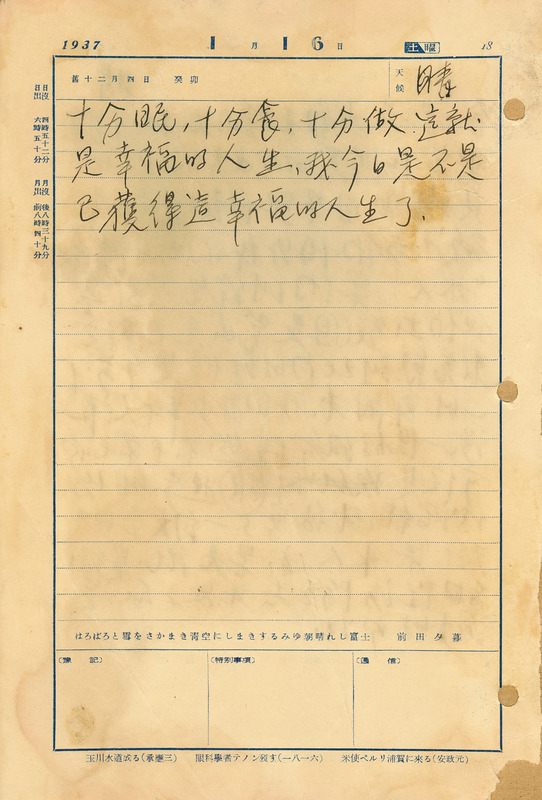 1937 1月16日 土曜 18
舊十二月四日 癸卯
天候 晴
日出 六時五十分
日沒 四時五十二分
月出 前八時四十分
月沒 後八時三十九分
十分眠,十分食,十分做.這就
是幸福的人生、我今日是不是
已獲得這幸福的人生了.
はろばろと雪をさかまき靑空にしまきするみゆ朝晴れし富士 前田夕暮
〔豫記〕
〔特別事項〕
〔通信〕
玉川水道成る(承應三) 眼科學者テノン歿す(一八一六) 米使ペルリ浦賀に來る(安政元)